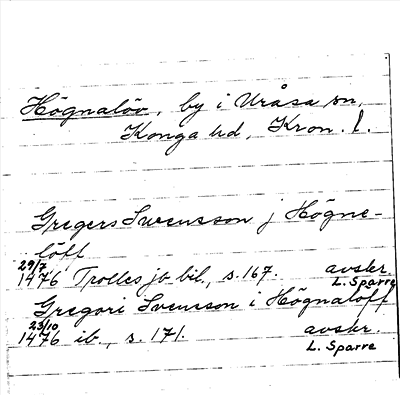 Högnalöv, by i Uråsa sn,
Konga hd, Kron. l.
Gregers Swensson j Högne-
löff
29/7 1476 Trolles jb bil., s. 167. avskr. L. Sparre
Gregori Svensson i Högnaloff
23/10 1476 ib., s. 171. avskr.
L. Sparre